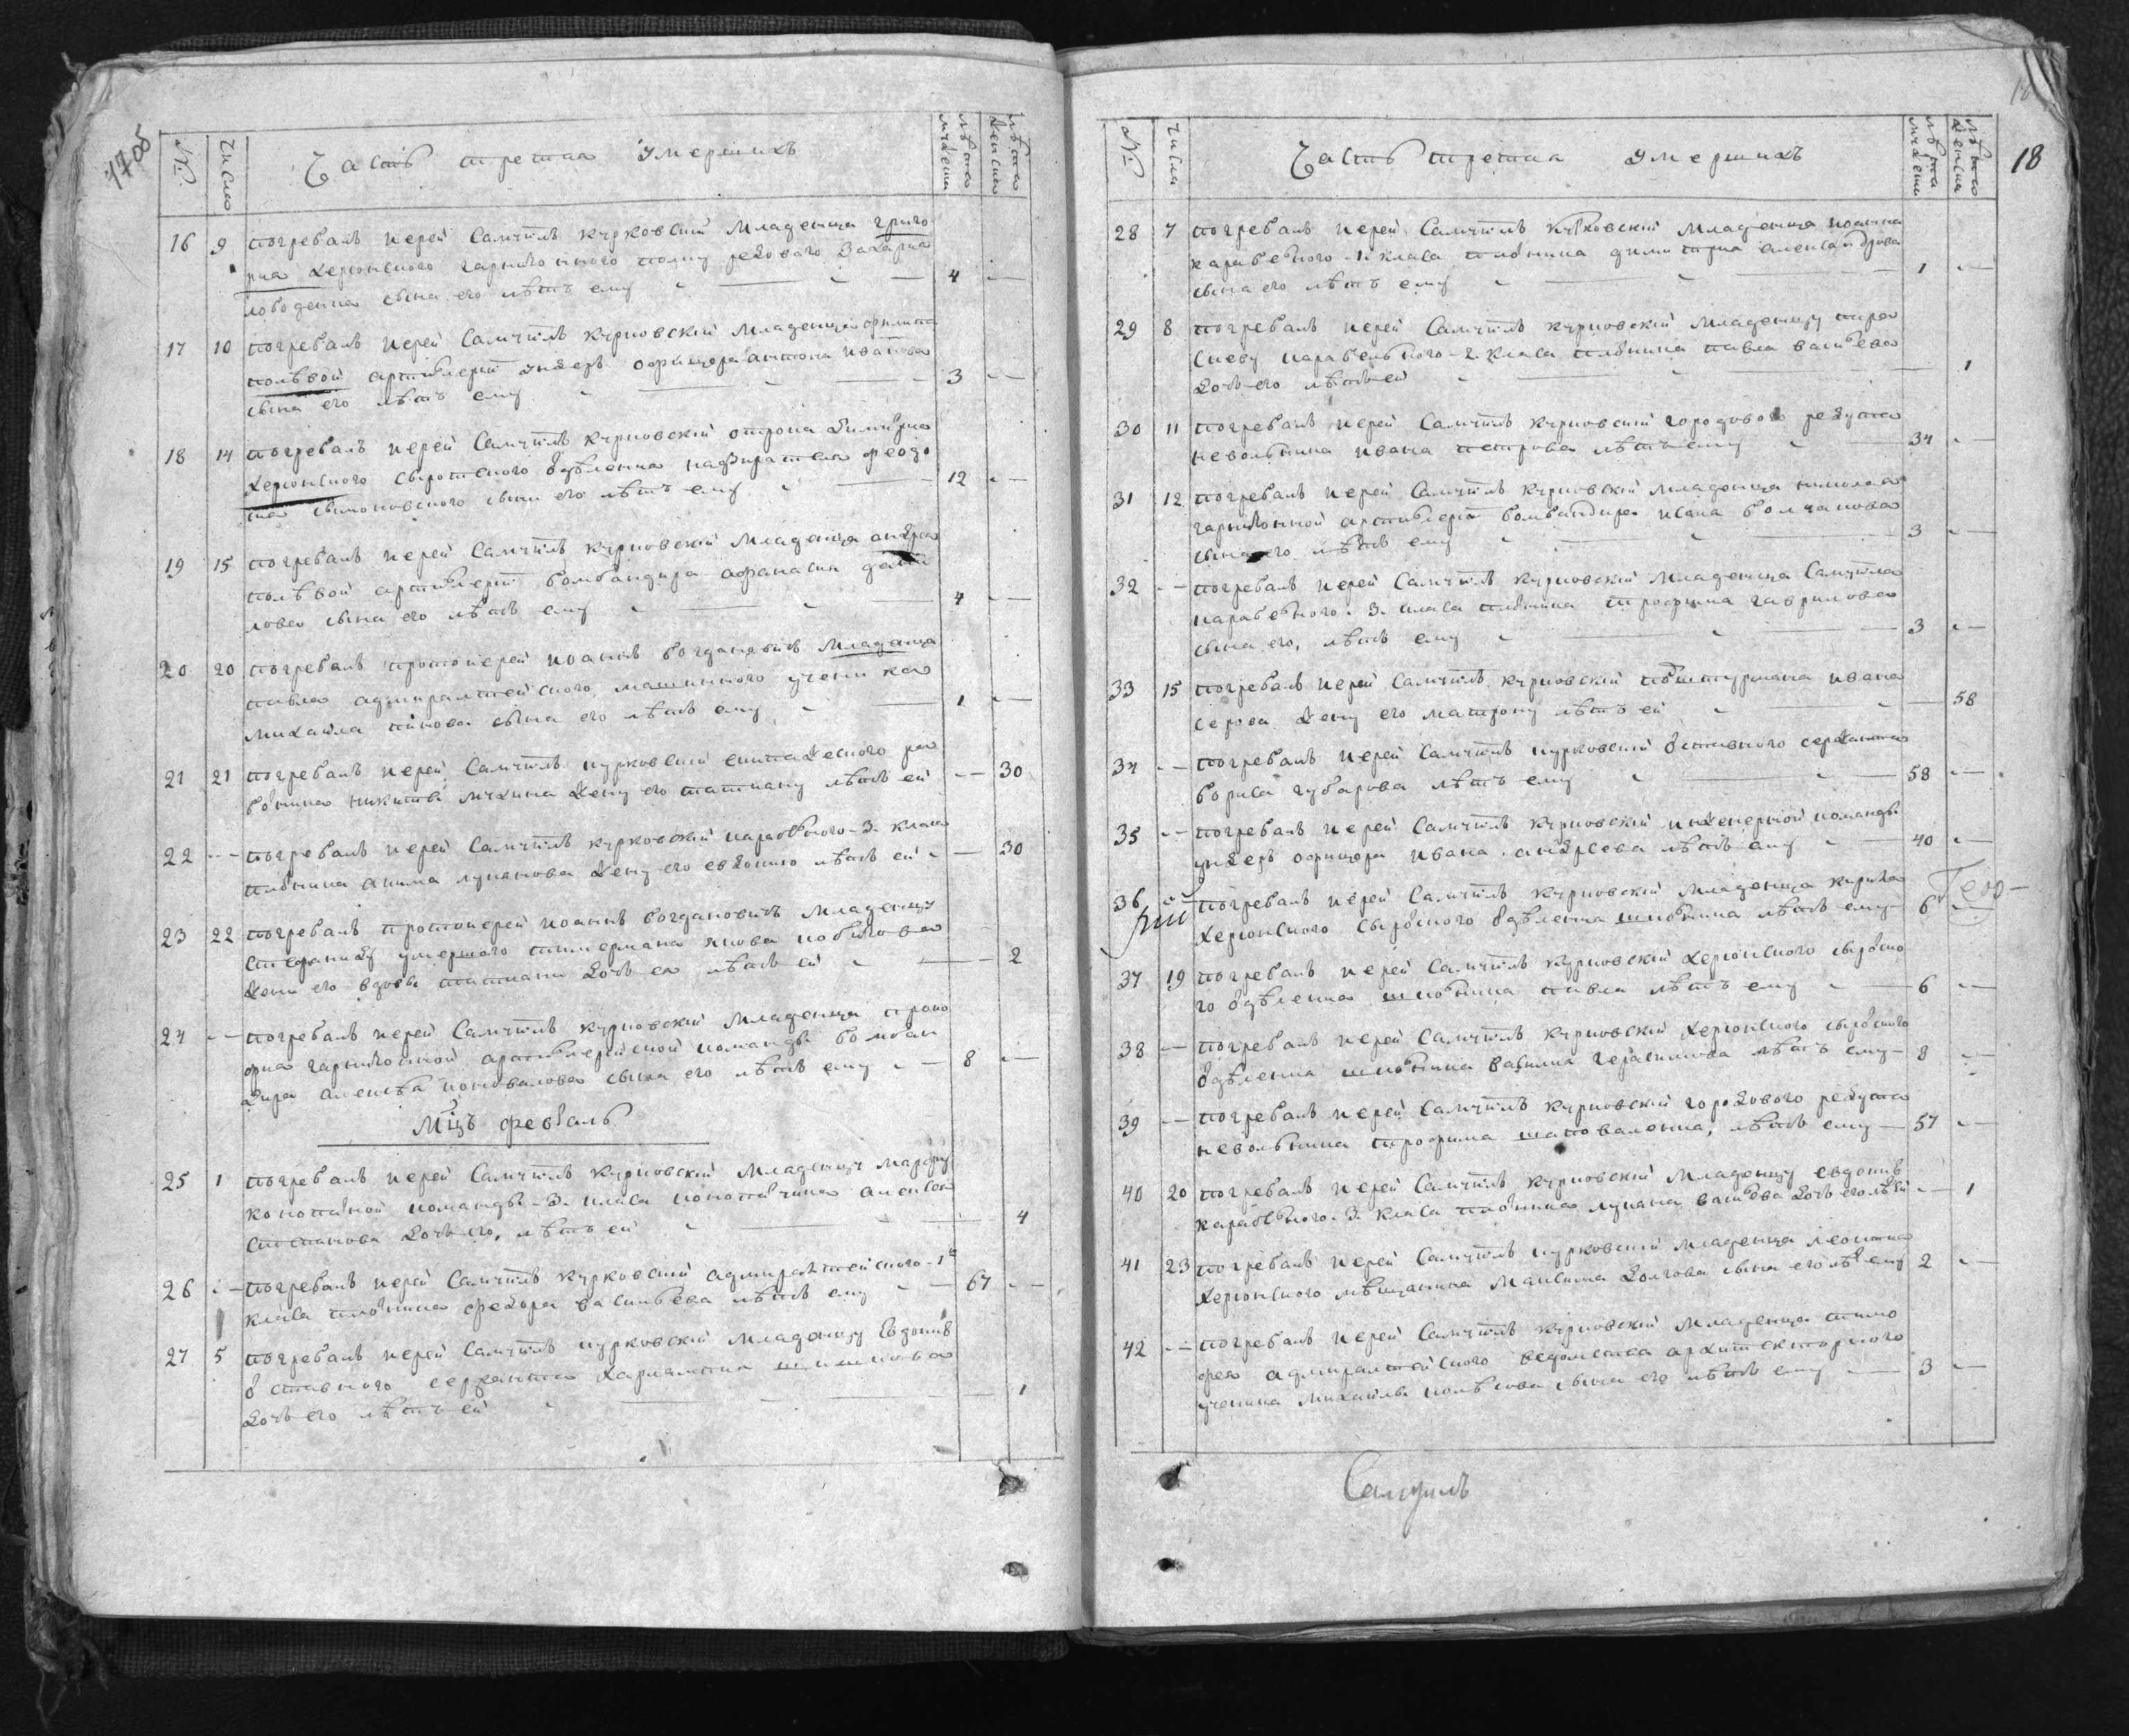 Часть третиа Умершихъ
№
число
лѣта мужеска
лѣта женска
16 9 погребалъ иерей Самуилъ курковский младенца григо
риа херсонского гарнизонного полку редового Захариа
сына его лѣтъ ему 4
17 10 погребалъ иерей Самуилъ курковский младенца филипа
полѣвой артилерии ундеръ офицера антона иванова
сына его лѣтъ ему 3
18 14 погребалъ иерей Самуилъ курковский отрока
херсонского сиротского отдѣлениа надзирателя феодо
сына его лѣтъ ему 12
19 15 погребалъ иерей Самуилъ курковский младенца андреа
полѣвой артилерии бомбандира афанасия дани
лова сына его лѣтъ ему 4
20 20 погребалъ протоиерей иоаннъ богдановичъ младенца
павла адмиралтейского машинного ученика
михайла сына его лѣтъ ему 1
21 21 погребалъ иерей Самуилъ курковский
никиты жену его татиану лѣтъ ей 30
22 погребалъ иерей Самуилъ курковский карабелного 3. класа
плотника акима луканова жену его евдокию лѣтъ ей 30
23 22 погребалъ протоиерей иоаннъ богдановичъ младенцу
стефаниду умершого тимермана якова
жени его вдовы татианы дочь ея лѣтъ ей 2
24 погребалъ иерей Самуилъ курковский младенца проко
фиа гарнизонной артилерийской команды бомбан
дира алексѣя коновалова сына его лѣтъ ему 8
Мцъ февраль
25 1 погребалъ иерей Самуилъ курковский младенцу марфу
конопатной команды 3. класа конопатчика алексея
степанова дочь его, лѣтъ ей 4
26 погребалъ иерей Самуилъ курковский адмиралтейского 1го
класа плотника федора василиева лѣтъ ему 67
27 5 погребалъ иерей Самуилъ курковский младенцу Евдокию
отставного сержанта харлампия шишкова
дочь его лѣтъ ей 1
18
Часть третиа умершихъ
№
числа
лѣта мужеска
лѣта женска
28 7 погребалъ иерей Самуилъ курковский младенца иоанна
карабелного 1. класа плотника димитриа александрова
сына его лѣтъ ему 1
29 8 погребалъ иерей Самуилъ курковский младенцу пара
скеву карабелного 2. класа плотника павла василева
дочь его лѣтъ ей 1
30 11 погребалъ иерей Самуилъ курковский городового редута
неволника ивана петрова лѣтъ ему 34
31 12 погребалъ иерей Самуилъ курковский младенца николая
гарнизонной артилерии бомбандира исака болчанова
сына его лѣтъ ему 3
32 погребалъ иерей Самуилъ курковский младенца Самуила
карабелного 3. класа плотника трофима гаврилова
сына его, лѣтъ ему 3
33 15 погребалъ иерей Самуилъ курковский подштурмана ивана
серова жену его матрону лѣтъ ей 58
34 погребалъ иерей Самуилъ курковский отставного сержанта
бориса губарова лѣтъ ему 58
35 погребалъ иерей Самуилъ курковский инженерной команды
ундеръ офицера ивана андреева лѣтъ ему 40
36 погребалъ иерей Самуилъ курковский младенца кирила
херсонского сиротского отдѣлениа школника лѣтъ ему 6
37 19 погребалъ иерей Самуилъ курковский херсонского сиротско
го отдѣлениа школника павла лѣтъ ему 6
38 погребалъ иерей Самуилъ курковский херсонского сиротского
отдѣлениа школника василиа герасимова лѣтъ ему 8
39 погребалъ иерей Самуилъ курковский городового редута
неволника трофима шаповаленка, лѣтъ ему 57
40 20 погребалъ иерей Самуилъ курковский младенцу евдокию
карабелного 3. класа плотника лукана василева дочь его лѣтъ ей 1
41 23 погребалъ иерей Самуилъ курковский младенца леонтиа
херсонского мѣщанина максима долгова сына его лѣтъ ему 2
42 погребалъ иерей Самуилъ курковский младенца тимо
фея адмиралтейского ведомства архитекторного
ученика михайлы сына его лѣтъ ему 3
Самуилъ